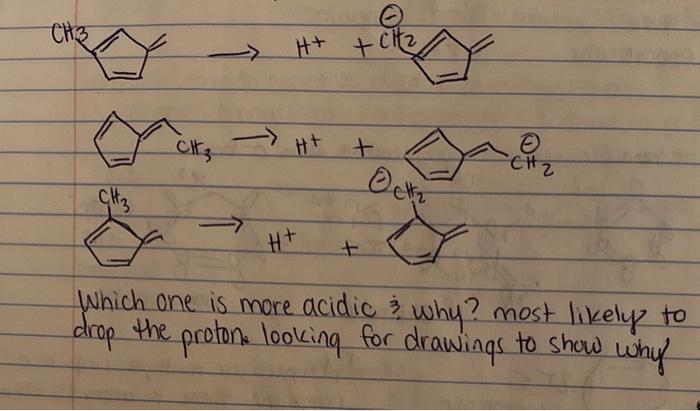 CH3 → H+ + ⊖CH2
CH3 → H+ + ⊖CH2
CH3 → H+ + ⊖CH2
Which one is more acidic & why? most likely to
drop the proton. looking for drawings to show why